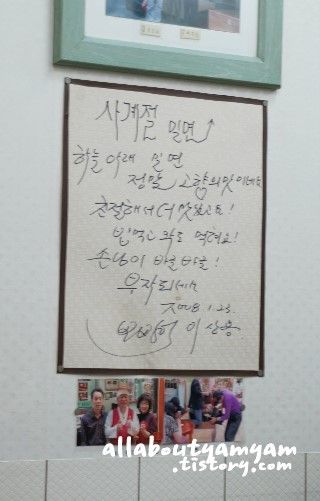 사계절 밀면
하늘 아래 밀면
정말 고향의 맛이네요
친절해서 더 맛있고요!
밥 먹고 와도 먹혀요!
손님이 바글바글!
부자되세요
2008. 1. 23.
이상용
allaboutyamyam
.tistory.com